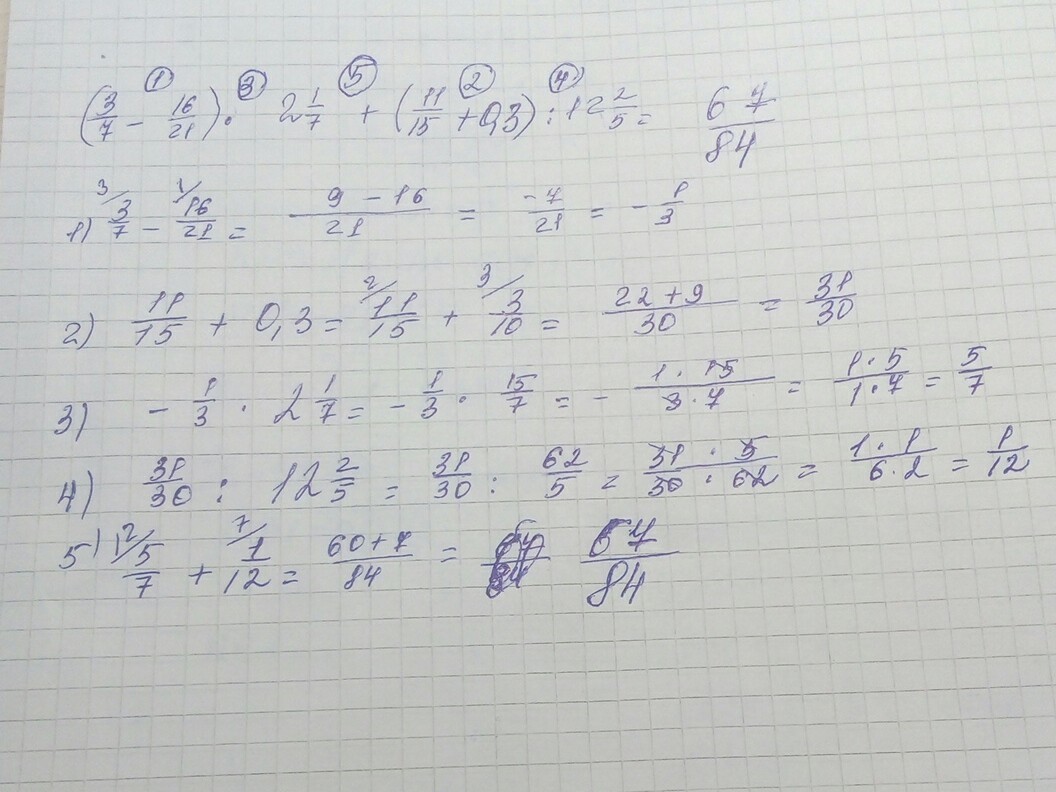 ① ③ ⑤ ② ④
(3/7 - 16/21) · 2 1/7 + (11/15 + 0,3) : 12 2/5 = 67/84
1) 3/7 (3 - 16/21 (1 = (9 - 16)/21 = -7/21 = - 1/3
2) 11/15 + 0,3 = 11/15 (2 + 3/10 (3 = (22 + 9)/30 = 31/30
3) - 1/3 · 2 1/7 = - 1/3 · 15/7 = - (1 · 15)/(3 · 7) = (1 · 5)/(1 · 7) = 5/7
4) 31/30 : 12 2/5 = 31/30 : 62/5 = (31 · 5)/(30 · 62) = (1 · 1)/(6 · 2) = 1/12
5) 5/7 (12 + 1/12 (7 = (60 + 7)/84 = 67/84